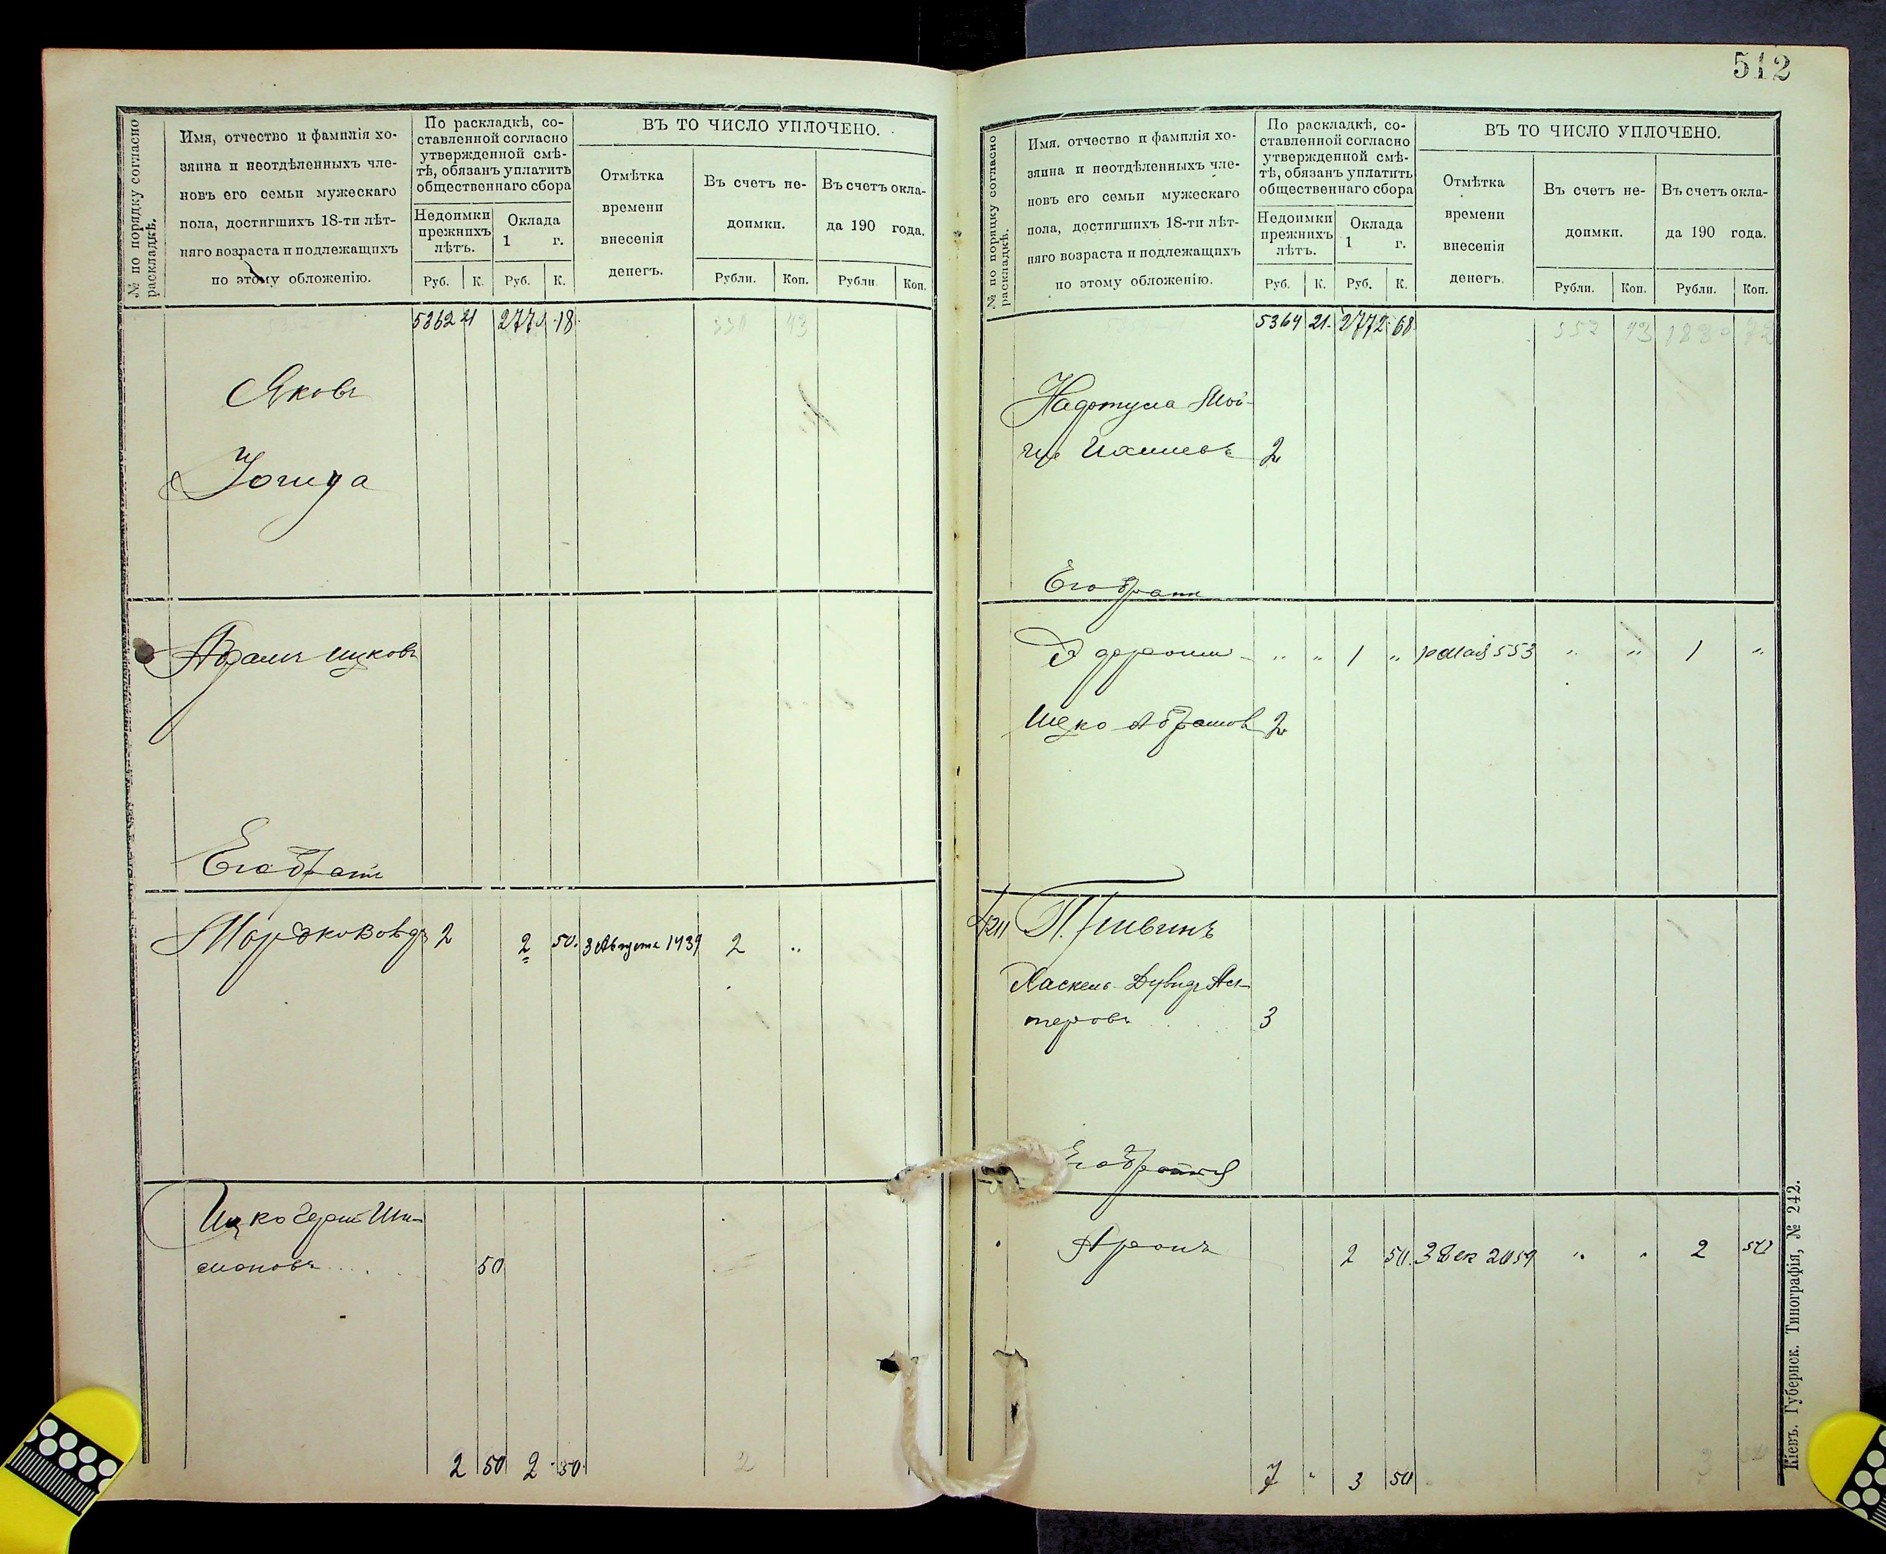 512
№ по порядку согласно
раскладкѣ.
Имя, отчество и фамилія хо-
зяина и неотдѣленныхъ чле-
новъ его семьи мужескаго
пола, достигшихъ 18-ти лѣт-
няго возраста и подлежащихъ
по этому обложенію.
По раскладкѣ, со-
ставленной согласно
утвержденной смѣ-
тѣ, обязанъ уплатить
общественнаго сбора
Недоимки
прежнихъ
лѣтъ.
Оклада
1 г.
Руб. К. Руб. К.
ВЪ ТО ЧИСЛО УПЛОЧЕНО.
Отмѣтка
времени
внесенія
денегъ.
Въ счетъ не-
доимки.
Въ счетъ окла-
да 190 года.
Рубли. Коп. Рубли Коп.
5362 21 18
Яковъ
Абрамъ Ицковъ
Его братъ
2 2 50 3 Августа 1439 2 "
Ицко Герш Ши-
моновъ 50
2 50 2 50
2
№ по порядку согласно
раскладкѣ.
Имя, отчество и фамилія хо-
зяина и неотдѣленныхъ чле-
новъ его семьи мужескаго
пола, достигшихъ 18-ти лѣт-
няго возраста и подлежащихъ
по этому обложенію.
По раскладкѣ, со-
ставленной согласно
утвержденной смѣ-
тѣ, обязанъ уплатить
общественнаго сбора
Недоимки
прежнихъ
лѣтъ.
Оклада
1 г.
Руб. К. Руб. К.
ВЪ ТО ЧИСЛО УПЛОЧЕНО.
Отмѣтка
времени
внесенія
денегъ.
Въ счетъ не-
доимки.
Въ счетъ окла-
да 190 года.
Рубли. Коп. Рубли. Коп.
5364 21 2772 68
Нафтула Мой-
2
Его братъ
" " 1 " 553 " " 1 "
Ицко Абрамов 2
Хаскель Дувидъ Ас-
теровъ 3
Его братья
Аронъ 2 50 3 Дек 2059 " " 2 50
7 " 3 50
Кіевъ. Губернск. Типографія, № 242.